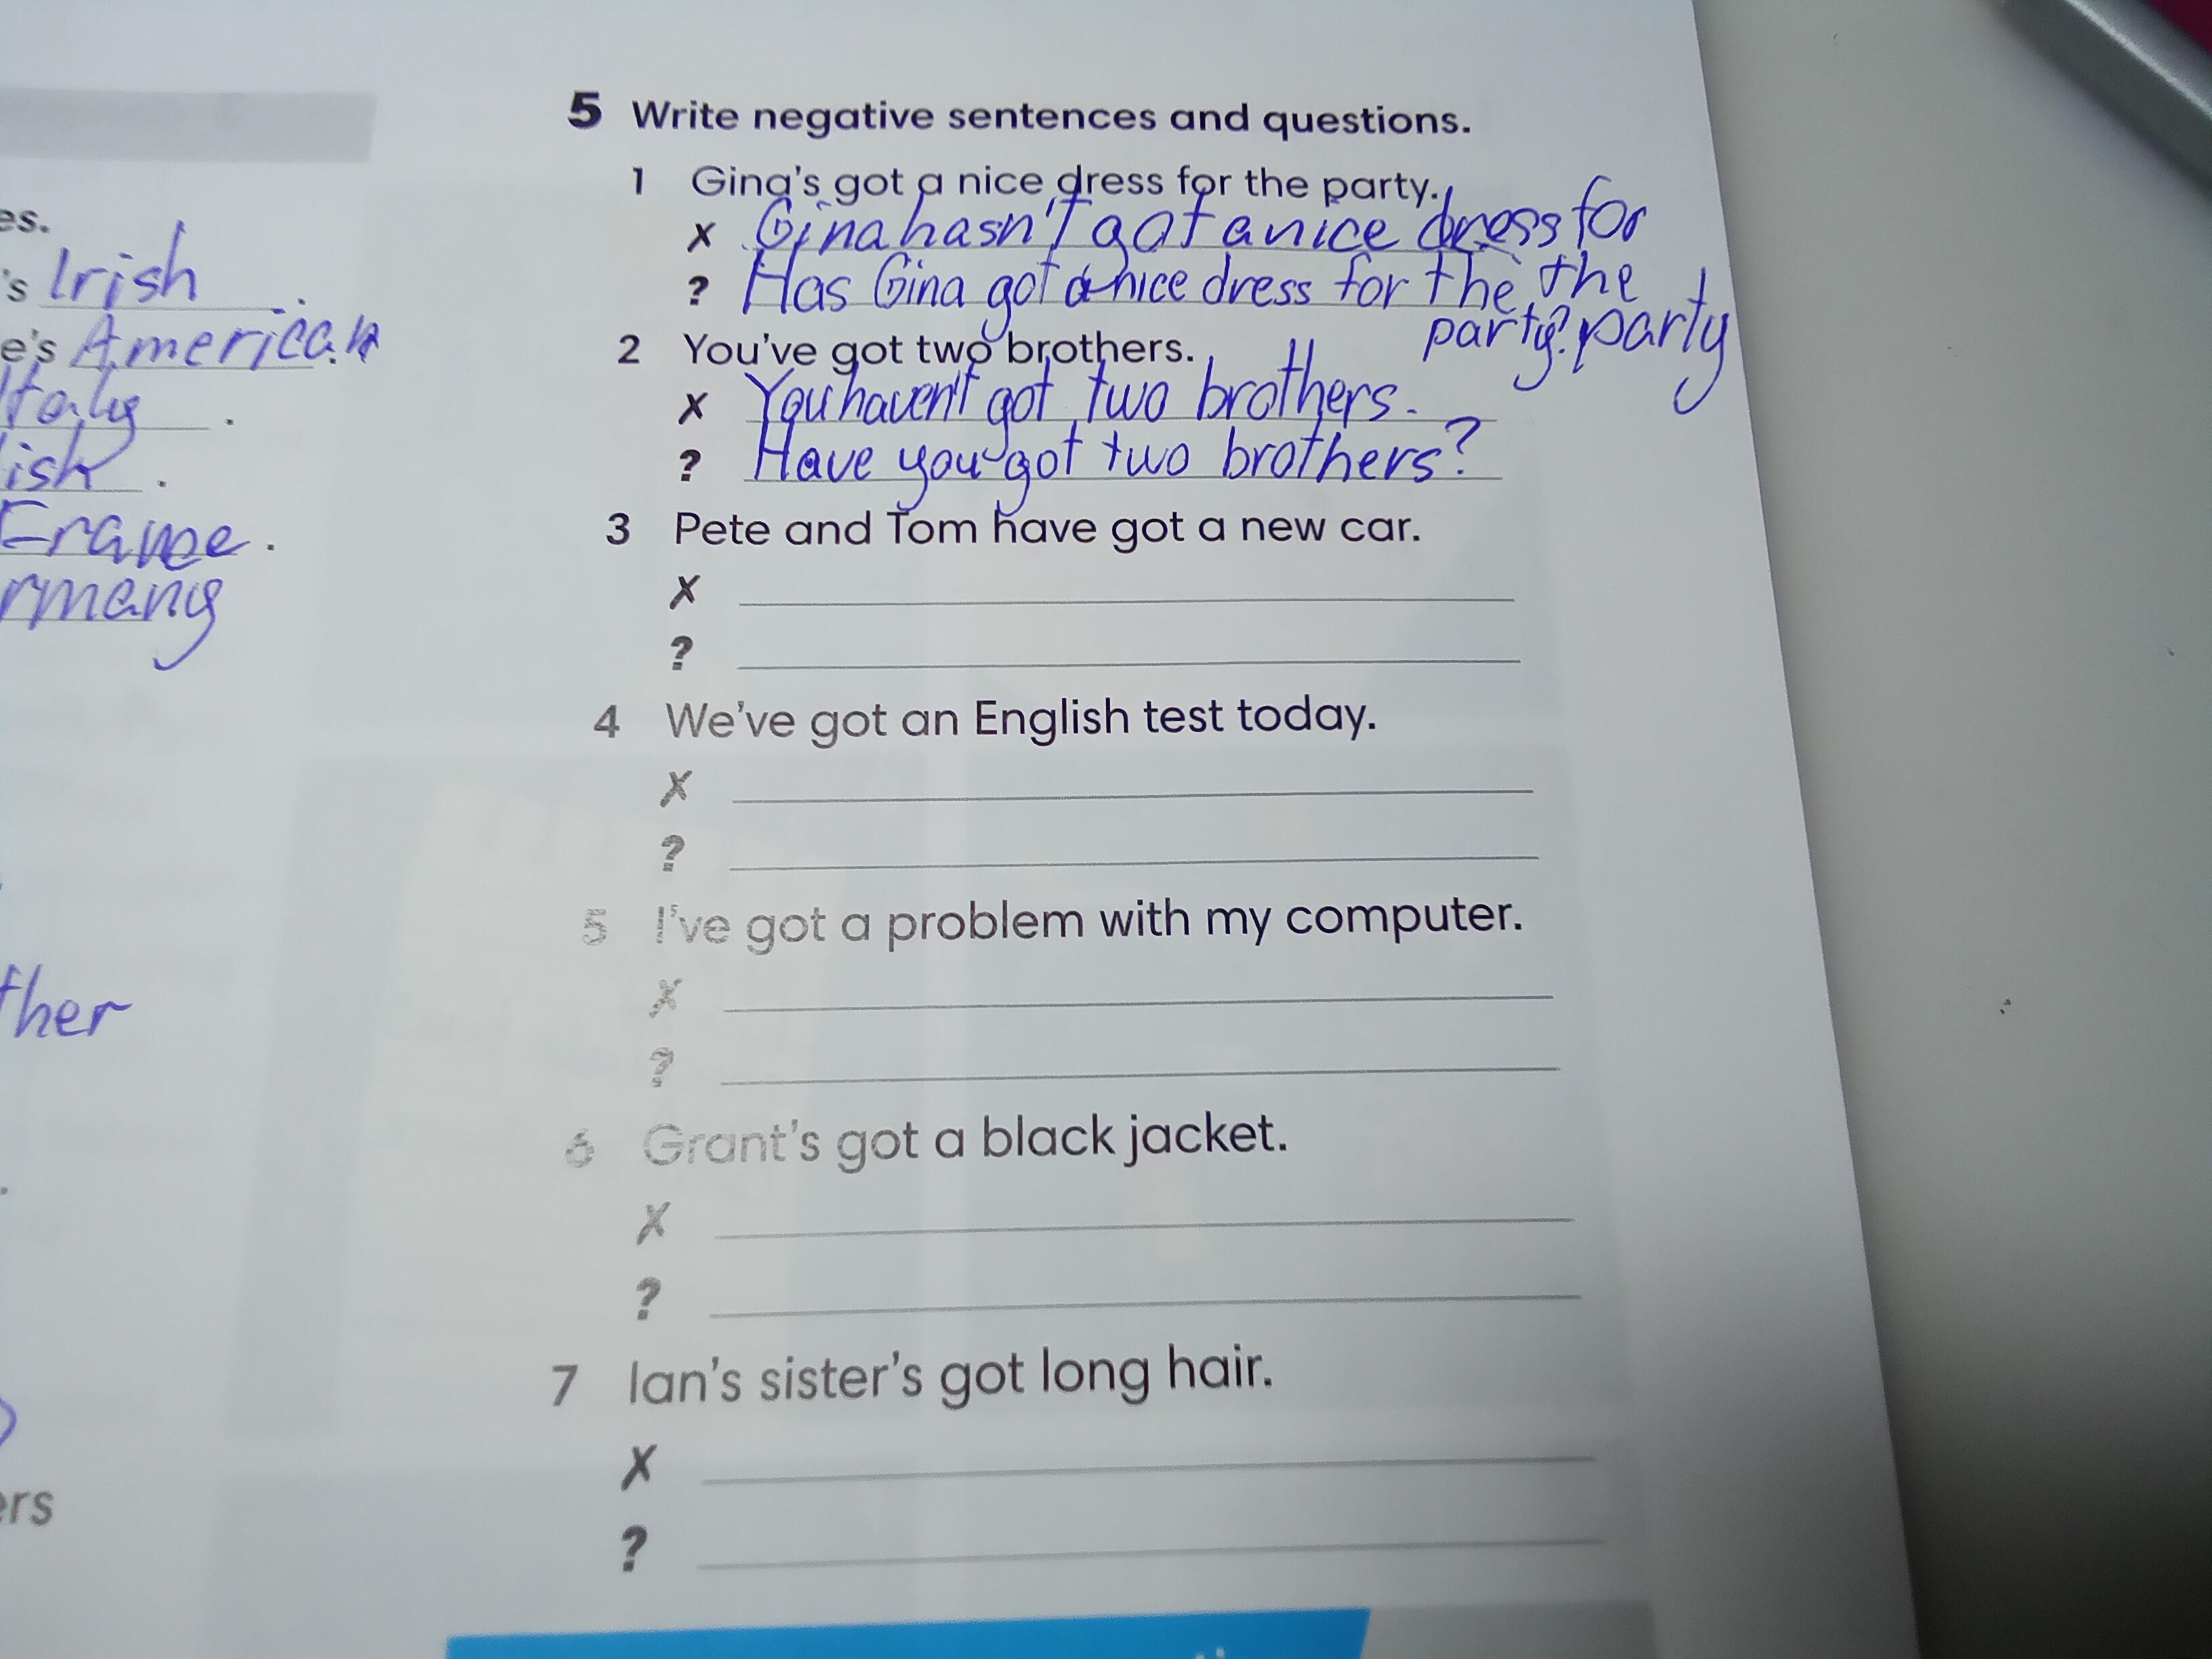 es.
's Irish .
e's American .
Italy .
lish .
France .
rmany
ther
ers
5 Write negative sentences and questions.
1 Gina's got a nice dress for the party.
X Gina hasn't got a nice dress for the party
? Has Gina got a nice dress for the party?
2 You've got two brothers.
X You haven't got two brothers.
? Have you got two brothers?
3 Pete and Tom have got a new car.
X
?
4 We've got an English test today.
X
?
5 I've got a problem with my computer.
X
?
6 Grant's got a black jacket.
X
?
7 Ian's sister's got long hair.
X
?